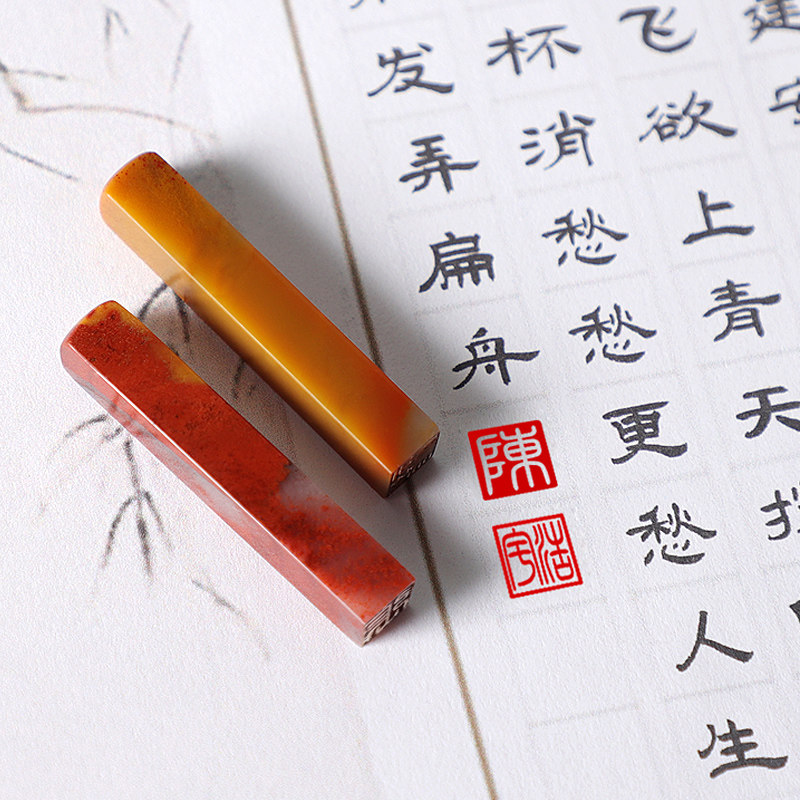 建安
飞欲上青天
杯消愁愁更愁人生
发弄扁舟
陳
浩宇